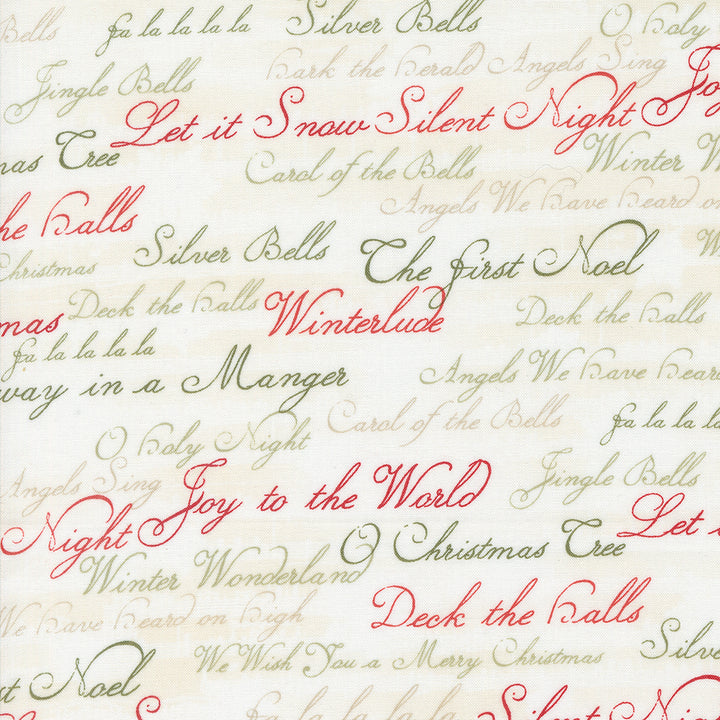 Bells fa la la la la Silver Bells O holy
Jingle Bells hark the herald Angels Sing Joy
Let it Snow Silent Night
mas Tree Carol of the Bells Winter W
the halls Angels We have heard on
Silver Bells The first Noel W
Christmas
Deck the halls Winterlude Deck the halls
mas
fa la la la la
way in a Manger Angels We have heard
Carol of the Bells fa la la la
O holy Night
Angels Sing Joy to the World Jingle Bells
Night O Christmas Tree Let i
Winter Wonderland
We have heard on high Deck the halls
We Wish You a Merry Christmas Silver
st Noel
fa la la la la Silent Night